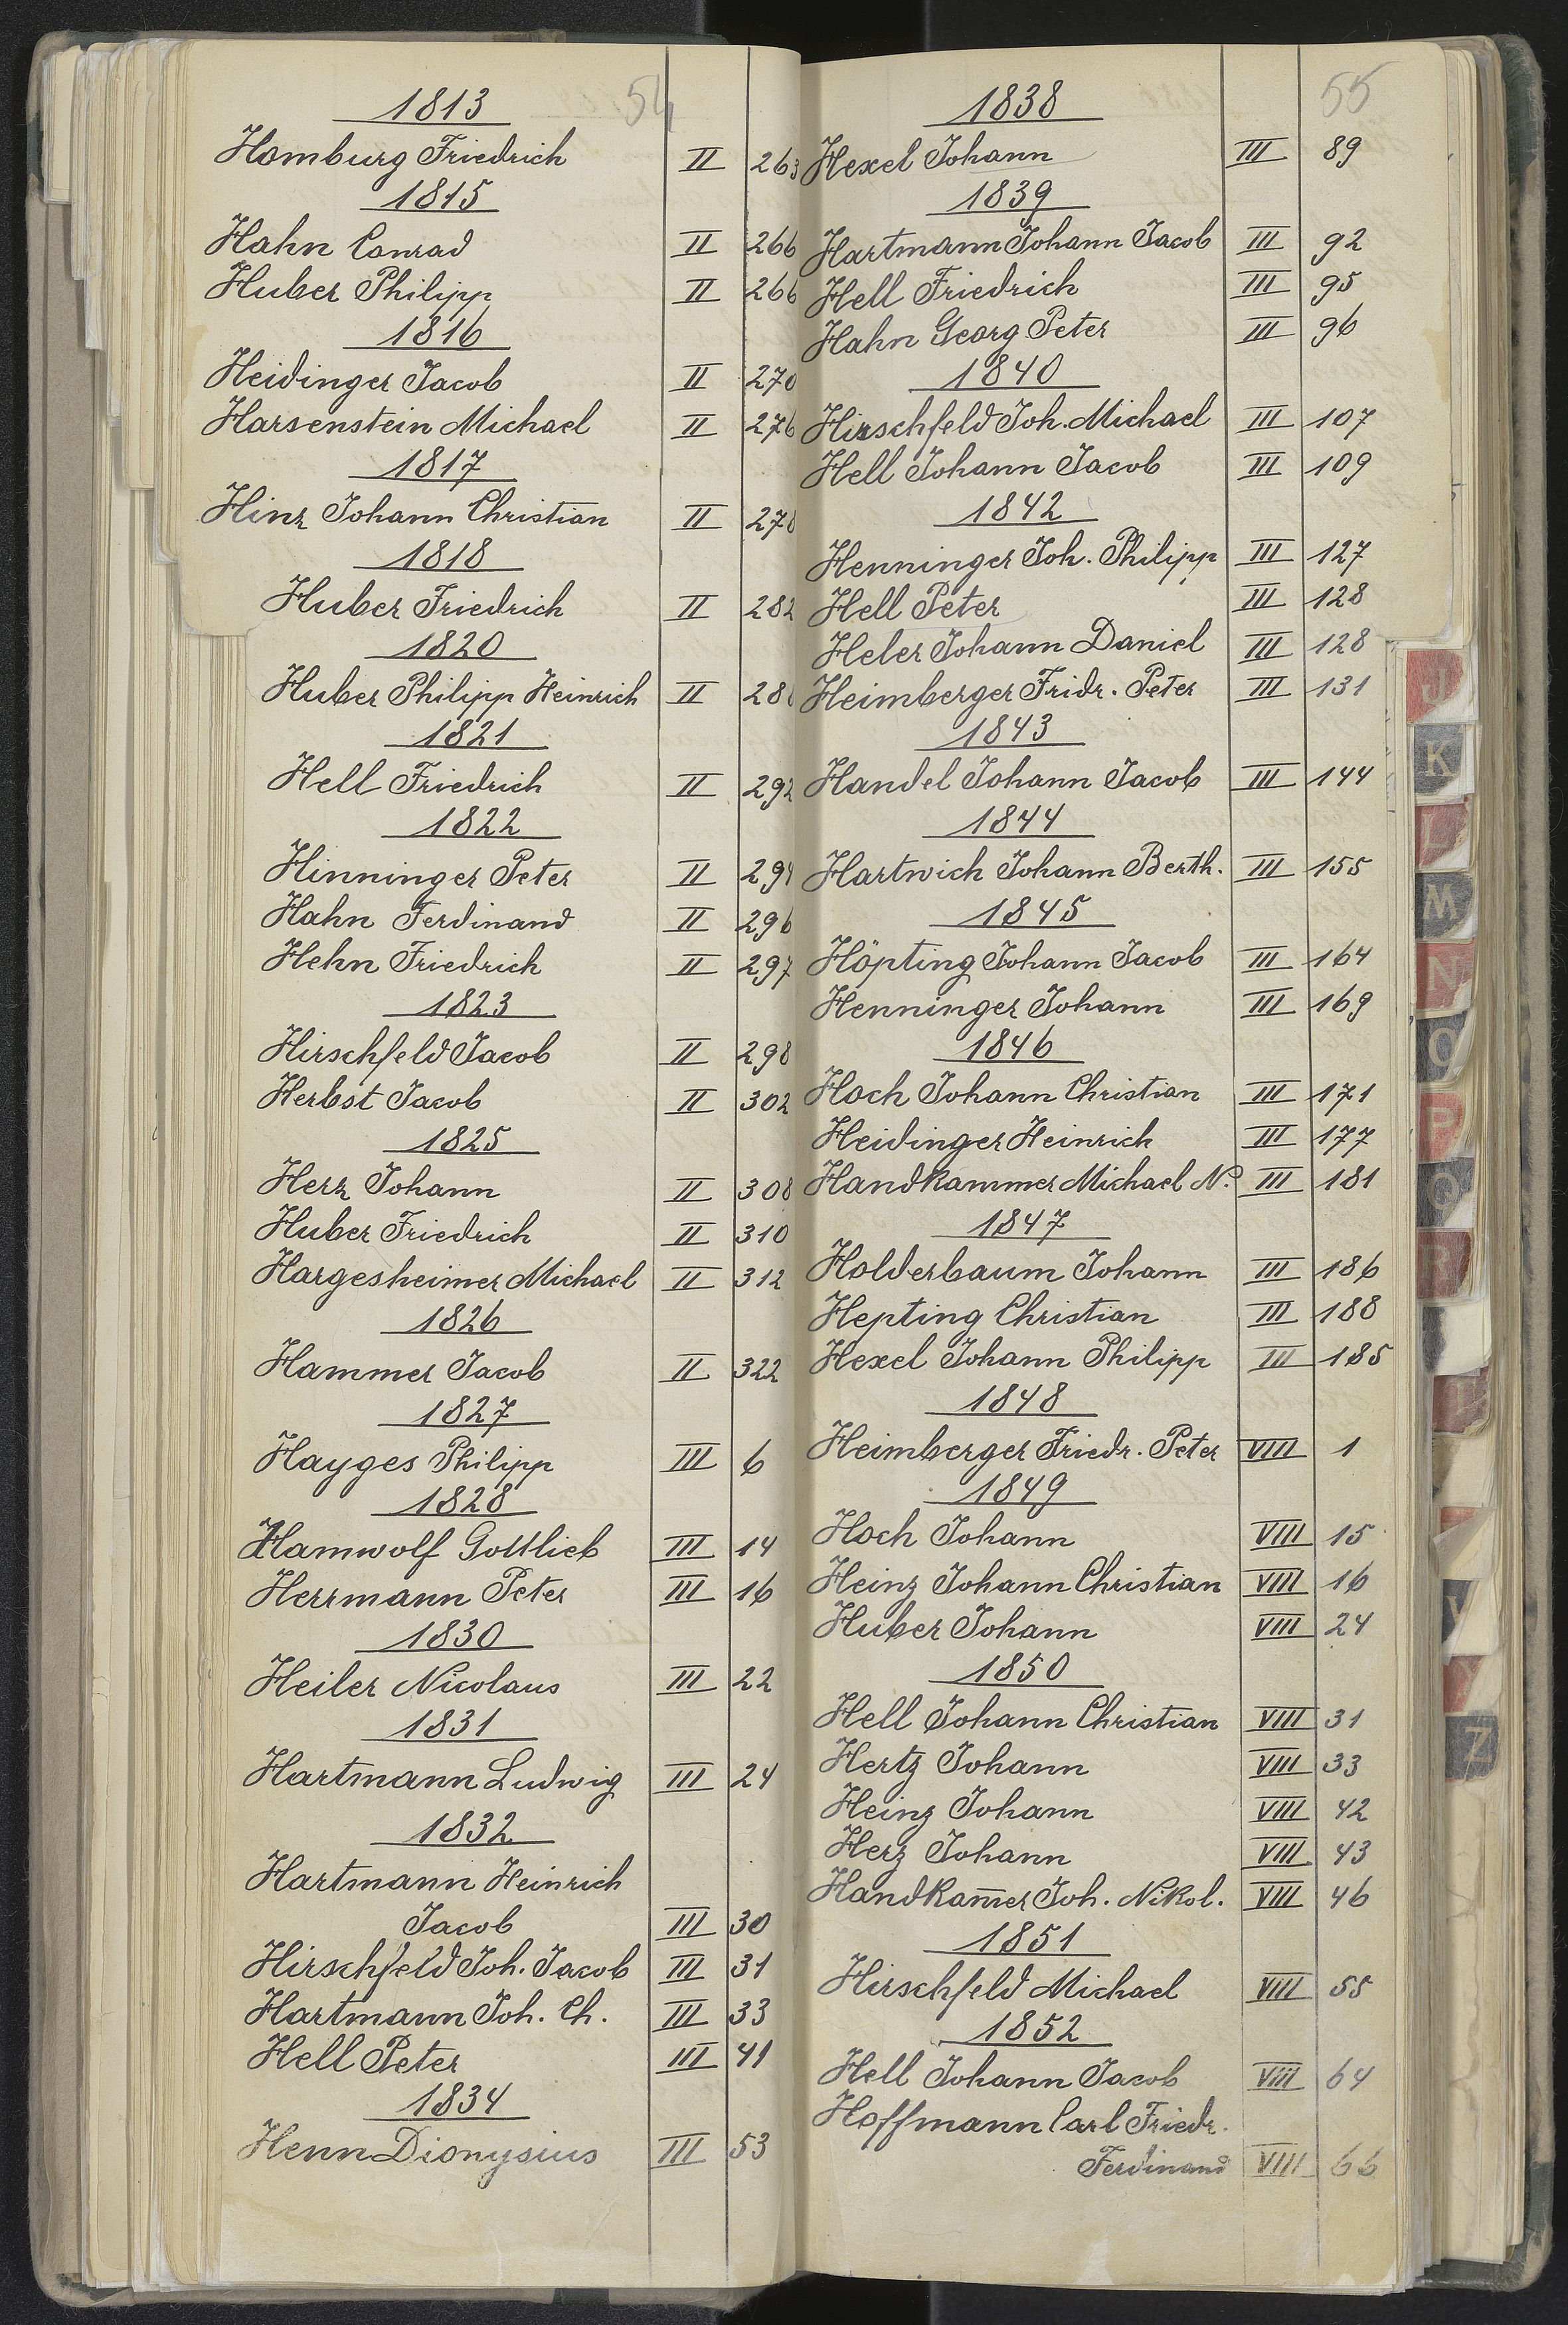 54
1813
Homburg Friedrich II 263
1815
Hahn Conrad II 266
Huber Philipp II 266
1816
Heidinger Jacob II 270
Harsenstein Michael II 276
1817
Hinz Johann Christian II 278
1818
Huber Friedrich II 282
1820
Huber Philipp Heinrich II 28
1821
Hell Friedrich II 292
1822
Hinninger Peter II 294
Hahn Ferdinand II 296
Hehn Friedrich II 297
1823
Hirschfeld Jacob II 298
Herbst Jacob II 302
1825
Herz Johann II 308
Huber Friedrich II 310
Hargesheimer Michael II 312
1826
Hammer Jacob II 322
1827
Hayges Philipp III 6
1828
Hamwolf Gottlieb III 14
Herrmann Peter III 16
1830
Heiler Nicolaus III 22
1831
Hartmann Ludwig III 24
1832
Hartmann Heinrich
Jacob III 30
Hirschfeld Joh. Jacob III 31
Hartmann Joh. Ch. III 33
Hell Peter III 41
1834
Henn Dionysius III 53
55
1838
Hexel Johann III 89
1839
Hartmann Johann Jacob III 92
Hell Friedrich III 95
Hahn Georg Peter III 96
1840
Hirschfeld Joh. Michael III 107
Hell Johann Jacob III 109
1842
Henninger Joh. Philipp III 127
Hell Peter III 128
Heler Johann Daniel III 128
Heimberger Fridr. Peter III 131
1843
Handel Johann Jacob III 144
1844
Hartwich Johann Berth. III 155
1845
Höpting Johann Jacob III 164
Henninger Johann III 169
1846
Hoch Johann Christian III 171
Heidinger Heinrich III 177
Handkammer Michael N. III 181
1847
Holderbaum Johann III 186
Hepting Christian III 188
Hexel Johann Philipp III 185
1848
Heimberger Friedr. Peter VIII 1
1849
Hoch Johann VIII 15
Heinz Johann Christian VIII 16
Huber Johann VIII 24
1850
Hell Johann Christian VIII 31
Hertz Johann VIII 33
Heinz Johann VIII 42
Herz Johann VIII 43
Handkam̅er Joh. Nikol. VIII 46
1851
Hirschfeld Michael VIII 55
1852
Hell Johann Jacob VIII 64
Hoffmann Carl Friedr.
Ferdinand VIII 66
J
K
L
M
N
O
P
Q
R
V
Z